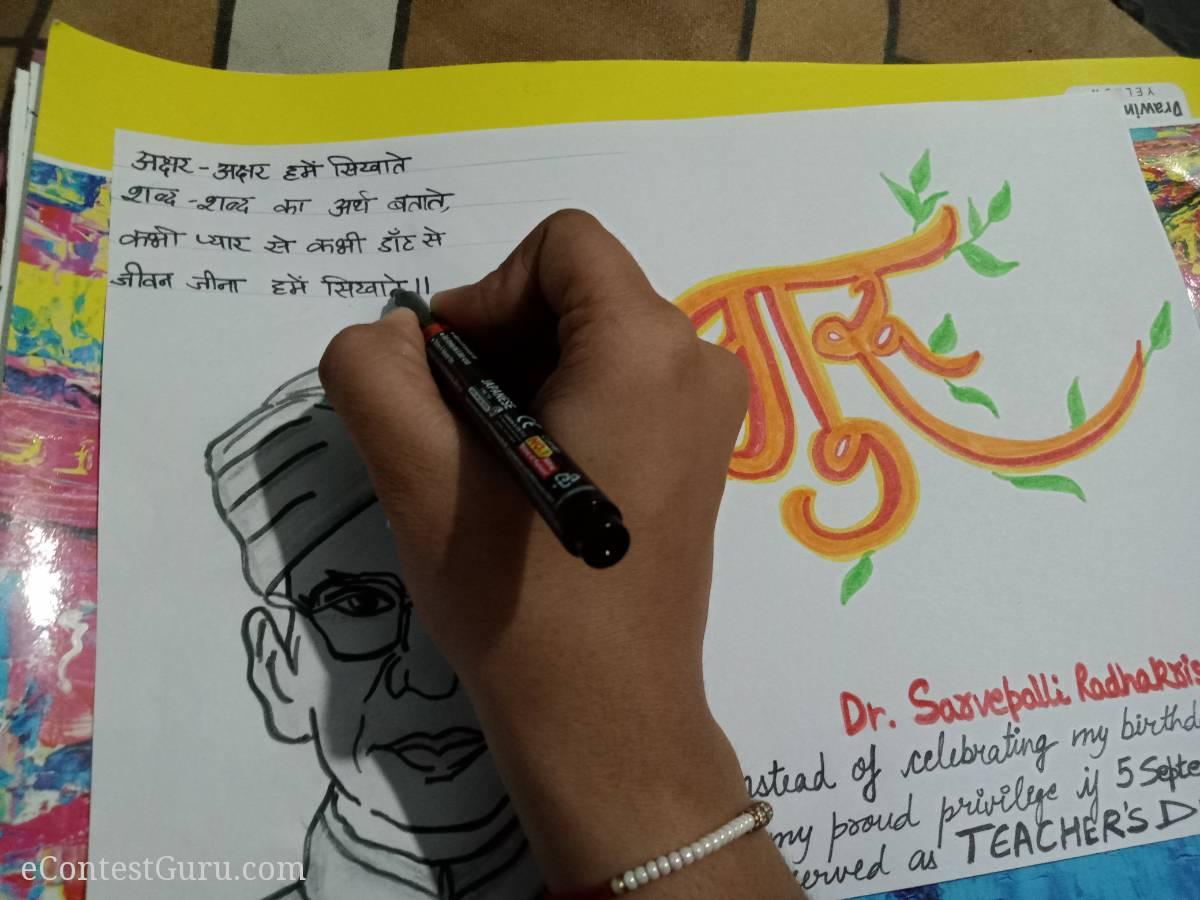 अक्षर - अक्षर हमें सिखाते
शब्द - शब्द का अर्थ बताते,
कभी प्यार से कभी डाँट से
जीवन जीना हमें सिखाते।।
गुरू
Dr. Sarvepalli Radhakris
nstead of celebrating my birthd
my proud privilege if 5 Septe
erved as TEACHER'S D
JAPANESE
Drawin
eContestGuru.com